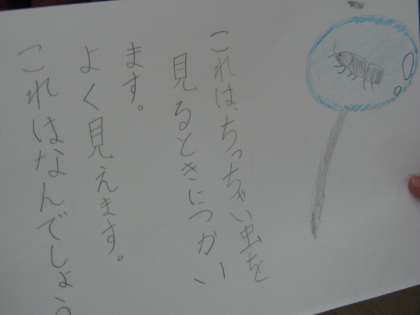 これは、ちっちゃい虫を
見るときにつかい
ます。
よく見えます。
これはなんでしょう